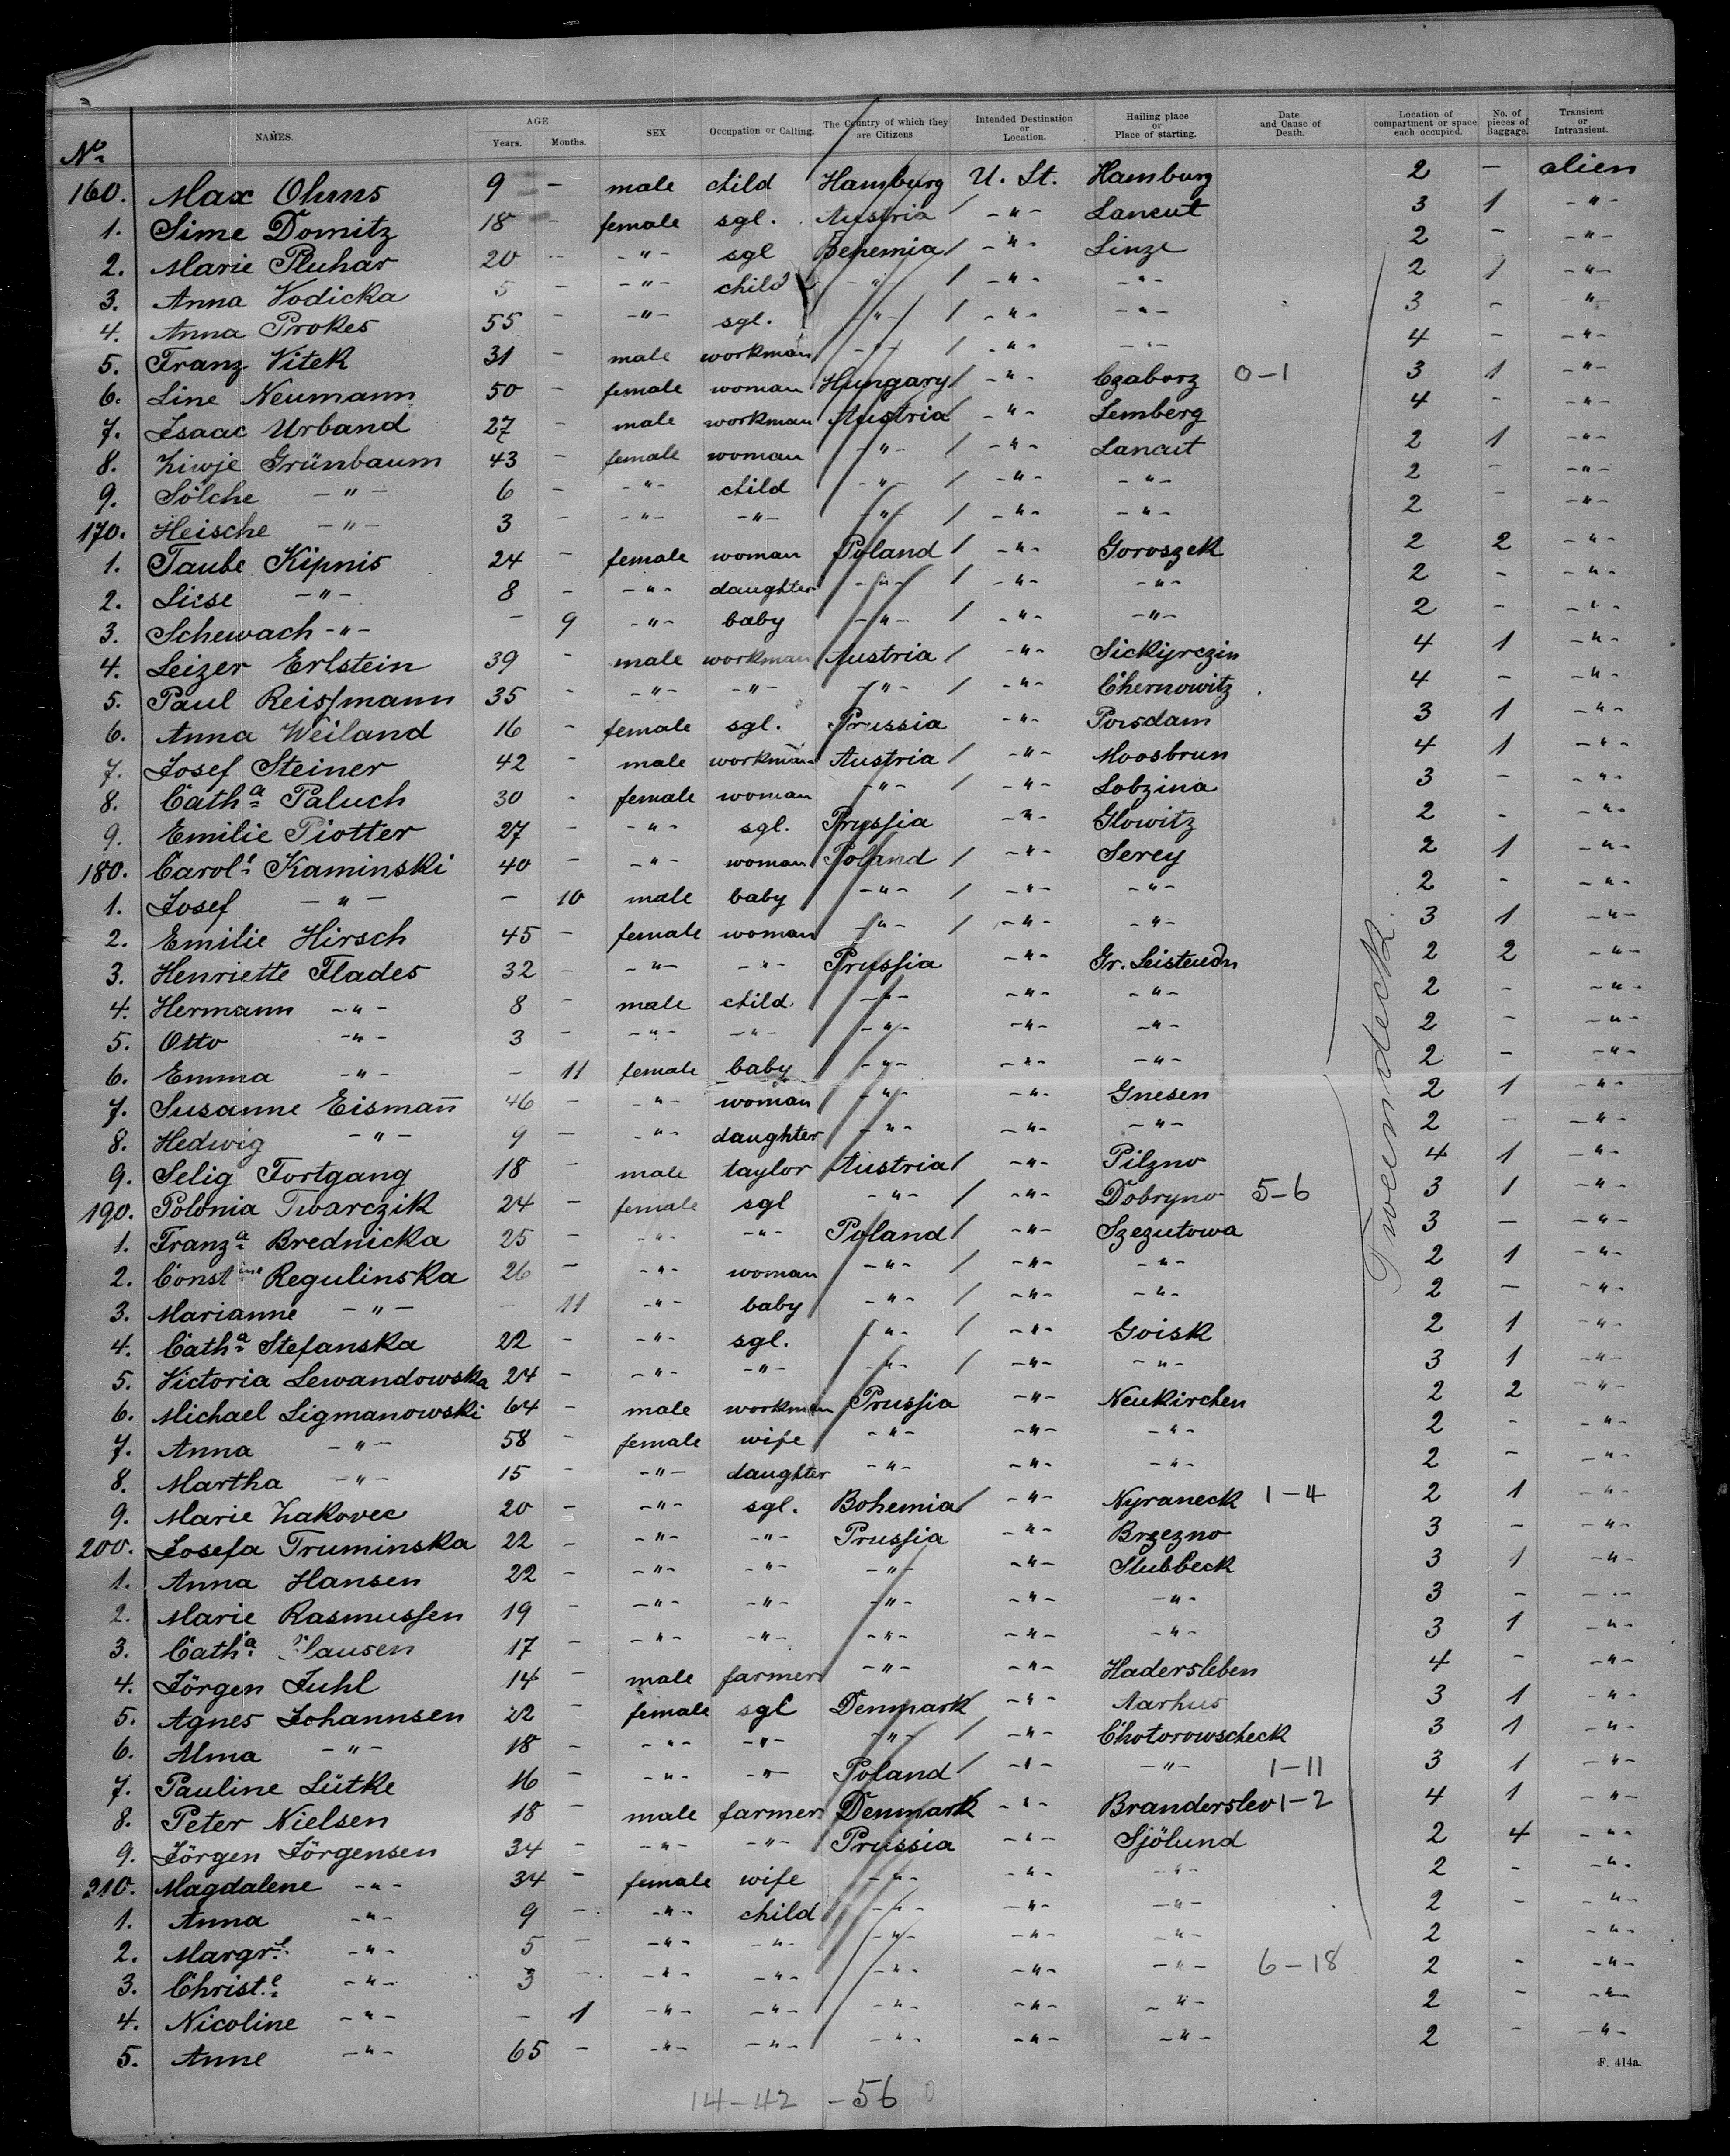 No. NAMES. AGE Years. Months. SEX Occupation or Calling. The Country of which they are Citizens Intended Destination or Location. Hailing place or Place of starting. Date and Cause of Death. Location of compartment or space each occupied. No. of pieces of Baggage. Transient or Intransient.
160. Max Ohms 9 - male child Hamburg U. St. Hamburg 2 - alien
1. Sime Domitz 18 - female sgl. Austria / -"- Lancut 3 1 -"-
2. Marie Pluhar 20 - -"- sgl Bohemia / -"- Linze 2 - -"-
3. Anna Vodicka 5 - -"- child -"- / -"- -"- 2 1 -"-
4. Anna Prokes 55 - -"- sgl. -"- / -"- -"- 3 - -"-
5. Franz Vitek 31 - male workman -"- / -"- -"- 4 - -"-
6. Line Neumann 50 - female woman Hungary / -"- Czaborz 0-1 3 1 -"-
7. Isaac Urband 27 - male workman Austria / -"- Lemberg 4 - -"-
8. Ziwje Grünbaum 43 - female woman -"- / -"- Lancut 2 1 -"-
9. Sölche -"- 6 - -"- child -"- / -"- -"- 2 - -"-
170. Heische -"- 3 - -"- -"- -"- / -"- -"- 2 - -"-
1. Taube Kipnis 24 - female woman Poland / -"- Goroszek 2 2 -"-
2. Liese -"- 8 - -"- daughter -"- / -"- -"- 2 - -"-
3. Schewach -"- - 9 -"- baby -"- / -"- -"- 2 - -"-
4. Leizer Erlstein 39 - male workman Austria / -"- Sickiyrczin 4 1 -"-
5. Paul Reissmann 35 - -"- -"- -"- / -"- Chernowitz 4 - -"-
6. Anna Weiland 16 - female sgl. Prussia -"- Porsdam 3 1 -"-
7. Josef Steiner 42 - male workman Austria / -"- Moosbrun 4 1 -"-
8. Catha Paluch 30 - female woman -"- / -"- Lobzina 3 - -"-
9. Emilie Piotter 27 - -"- sgl. Prussia -"- Glowitz 2 - -"-
180. Carole Kaminski 40 - -"- woman Poland / -"- Serey 2 1 -"-
1. Josef -"- - 10 male baby -"- / -"- -"- 2 - -"-
2. Emilie Hirsch 45 - female woman -"- / -"- -"- 3 1 -"-
3. Henriette Flades 32 - -"- -"- Prussia -"- Gr. Leistendn 2 2 -"-
4. Hermann -"- 8 - male child -"- -"- -"- 2 - -"-
5. Otto -"- 3 - -"- -"- -"- -"- -"- 2 - -"-
6. Emma -"- - 11 female baby -"- -"- -"- 2 - -"-
7. Susanne Eismañ 46 - -"- woman -"- -"- Gnesen 2 1 -"-
8. Hedwig -"- 9 - -"- daughter -"- -"- -"- 2 - -"-
9. Selig Fortgang 18 - male taylor Austria / -"- Pilzno 4 1 -"-
190. Polonia Twarczik 24 - female sgl -"- / -"- Dobryno 5-6 3 1 -"-
1. Franza Brednicka 25 - -"- -"- Poland / -"- Szezutowa 3 - -"-
2. Constine Regulinska 26 - -"- woman -"- / -"- -"- 2 1 -"-
3. Marianne -"- - 11 -"- baby -"- / -"- -"- 2 - -"-
4. Catha Stefanska 22 - -"- sgl. -"- / -"- Goisk 2 1 -"-
5. Victoria Lewandowska 24 - -"- -"- -"- / -"- -"- 3 1 -"-
6. Michael Ligmanowski 64 - male workman Prussia -"- Neukirchen 2 2 -"-
7. Anna -"- 58 - female wife -"- -"- -"- 2 - -"-
8. Martha -"- 15 - -"- daughter -"- -"- -"- 2 - -"-
9. Marie Zakovec 20 - -"- sgl. Bohemia / -"- Nyraneck 1-4 2 1 -"-
200. Josefa Truminska 22 - -"- -"- Prussia -"- Brzezno 3 - -"-
1. Anna Hansen 22 - -"- -"- -"- -"- Stubbeck 3 1 -"-
2. Marie Rasmussen 19 - -"- -"- -"- -"- -"- 3 - -"-
3. Catha Clausen 17 - -"- -"- -"- -"- -"- 3 1 -"-
4. Jörgen Juhl 14 - male farmer -"- -"- Hadersleben 4 - -"-
5. Agnes Johannsen 22 - female sgl Denmark / -"- Aarhus 3 1 -"-
6. Alma -"- 18 - -"- -"- -"- / -"- Chotorowscheck 3 1 -"-
7. Pauline Lütke 16 - -"- -"- Poland / -"- -"- 1-11 3 1 -"-
8. Peter Nielsen 18 - male farmer Denmark -"- Branderslev 1-2 4 1 -"-
9. Jörgen Jörgensen 34 - -"- -"- Prussia -"- Sjölund 2 4 -"-
210. Magdalene -"- 34 - female wife -"- -"- -"- 2 - -"-
1. Anna -"- 9 - -"- child -"- -"- -"- 2 - -"-
2. Margr. -"- 5 - -"- -"- -"- -"- -"- 2 -"-
3. Christe -"- 3 - -"- -"- -"- -"- -"- 6-18 2 - -"-
4. Nicoline -"- - 1 -"- -"- -"- -"- -"- 2 - -"-
5. Anne -"- 65 - -"- -"- -"- -"- -"- 2 - -"-
Tweendeck
F. 414a.
14-42 -56 0